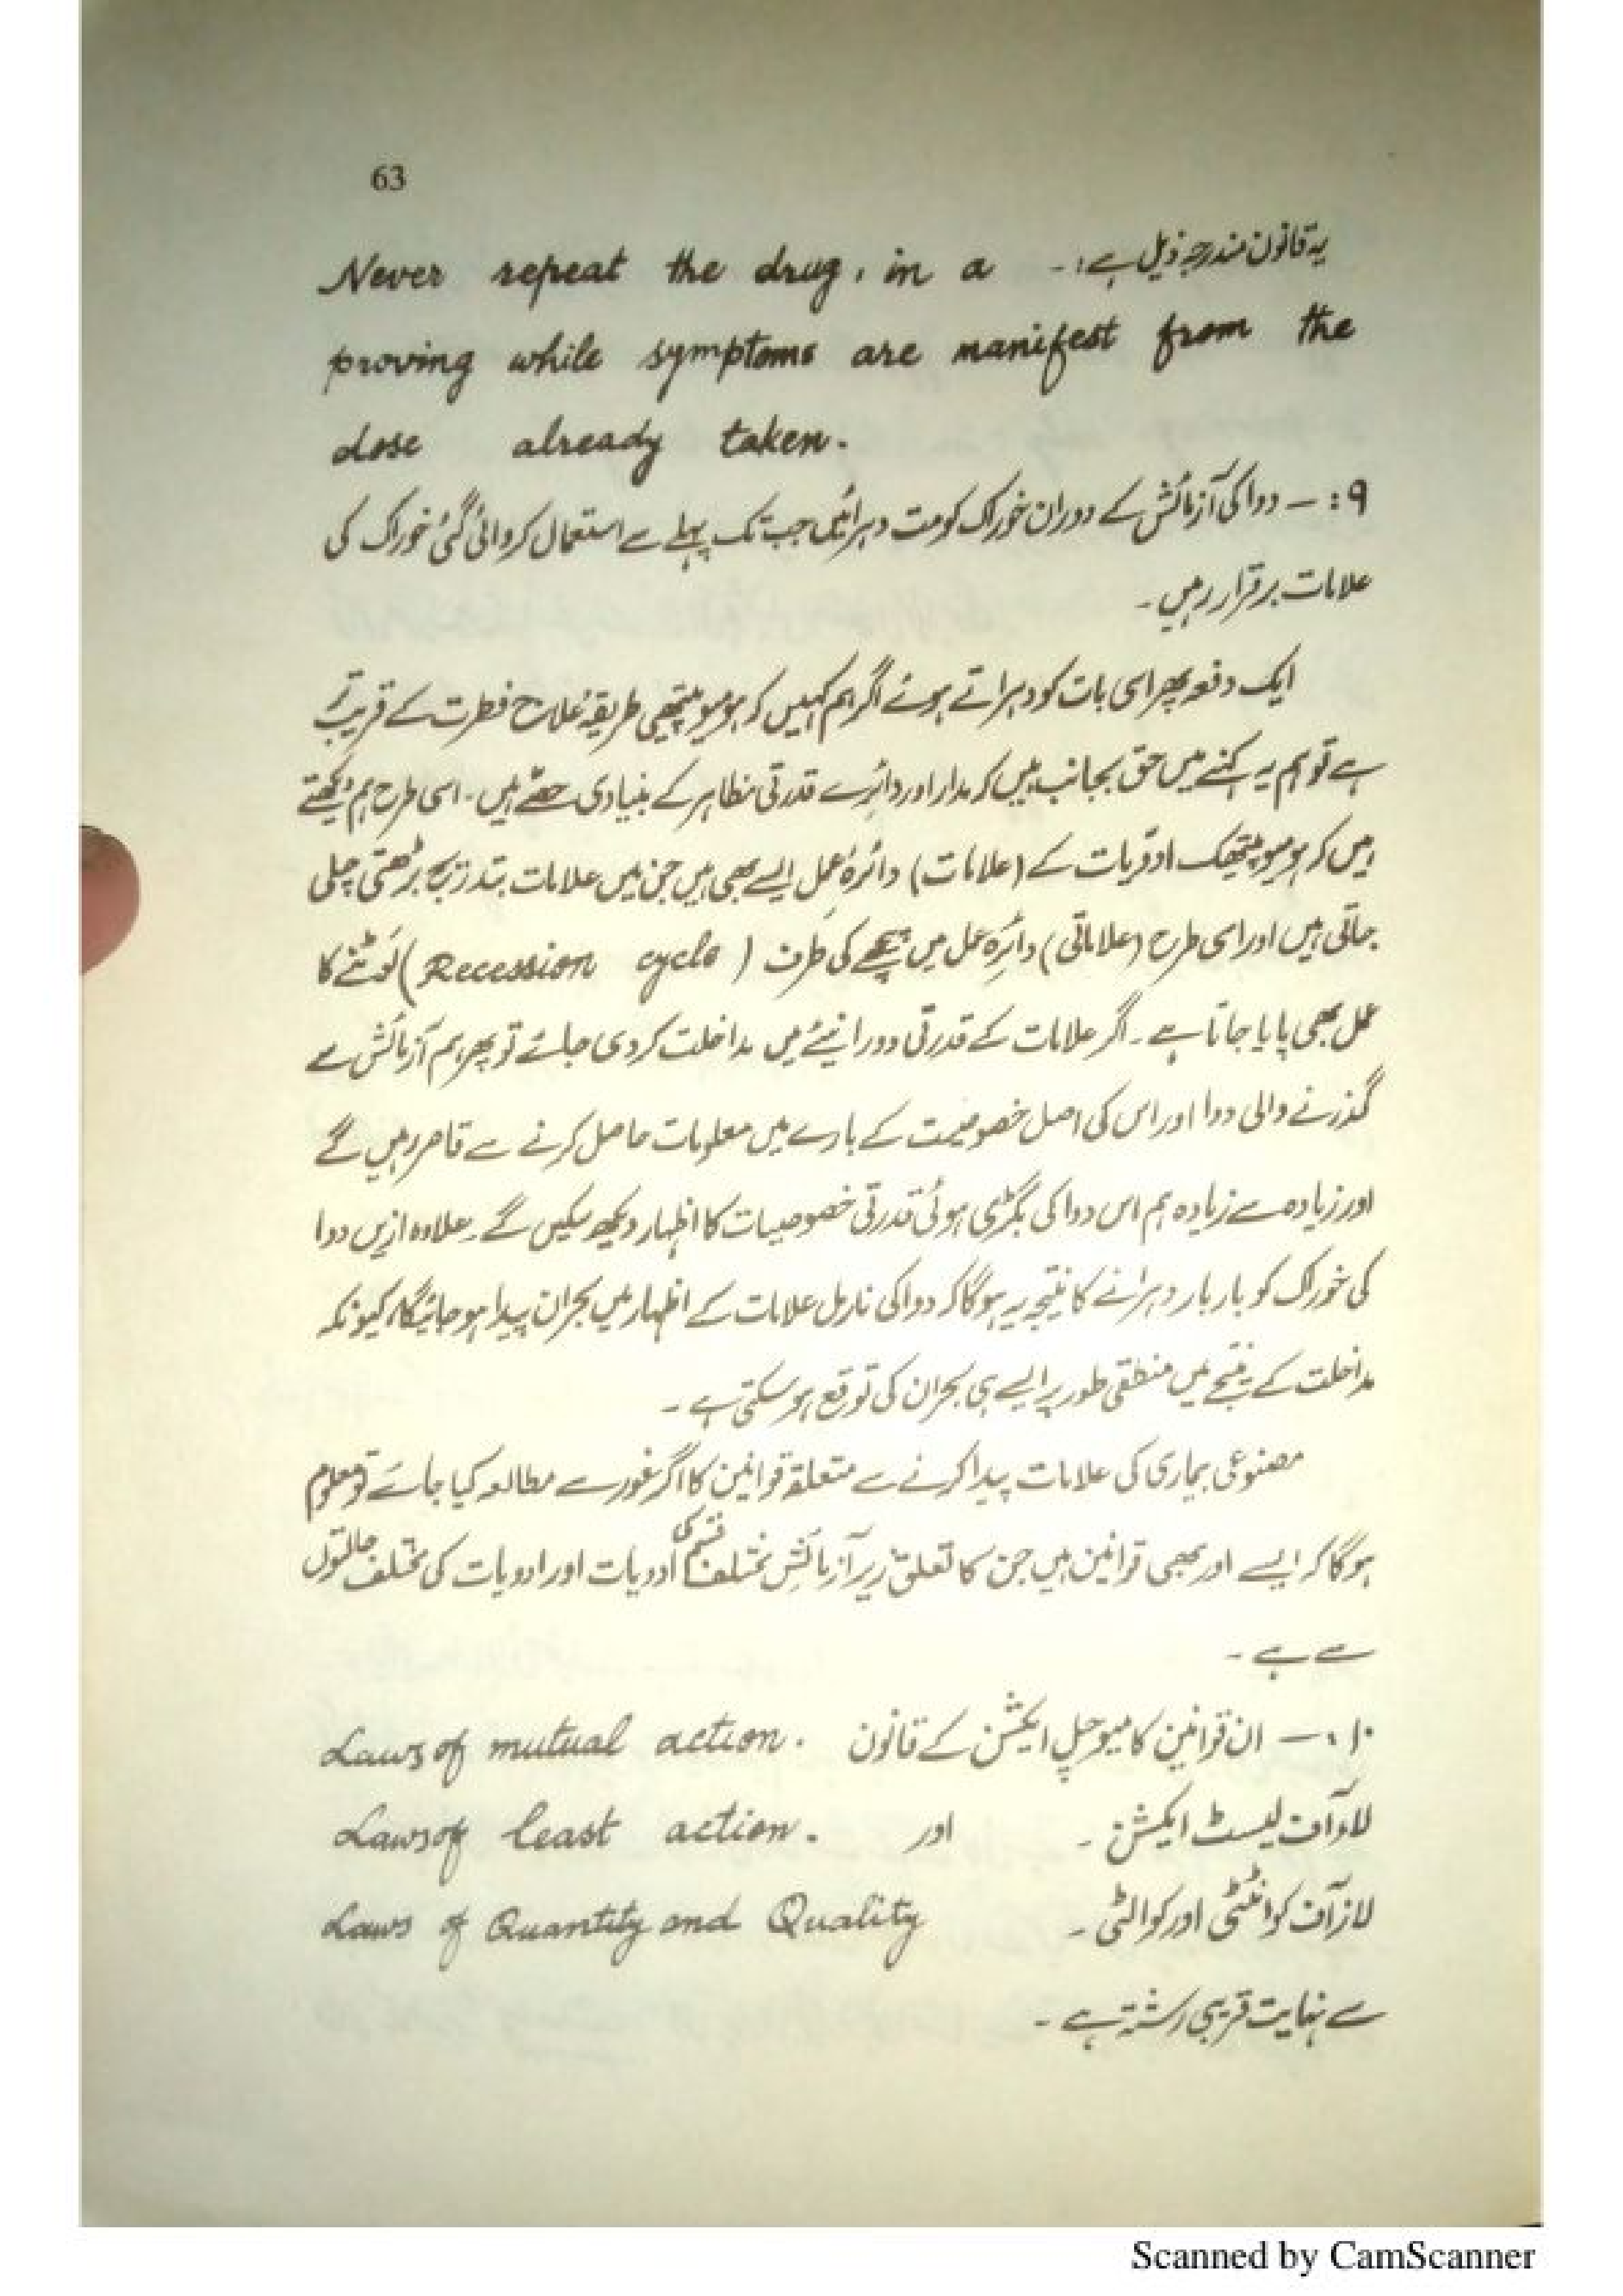 63
یہ قانون مندرجہ ذیل ہے:- Never repeat the drug, in a
proving while symptoms are manifest from the
dose already taken.
۹:- دوا کی آزمائش کے دوران خوراک کو مت دہرائیں جب تک پہلے سے استعمال کروائی گئی خوراک کی
علامات برقرار رہیں۔
ایک دفعہ پھر اسی بات کو دہراتے ہوئے اگر ہم کہیں کہ ہومیوپیتھی طریقۂ علاج فطرت کے قریب تر
ہے تو ہم یہ کہنے میں حق بجانب ہیں کہ مدار اور دائرے قدرتی مظاہر کے بنیادی حصّے ہیں۔ اسی طرح ہم دیکھتے
ہیں کہ ہومیوپیتھک ادویات کے (علامات) دائرۂ عمل ایسے بھی ہیں جن میں علامات بتدریج بڑھتی چلی
جاتی ہیں اور اسی طرح (علاماتی) دائرہ عمل میں پیچھے کی طرف (Recession cycle) لوٹنے کا
عمل بھی پایا جاتا ہے۔ اگر علامات کے قدرتی دورانیئے میں مداخلت کر دی جائے تو پھر ہم آزمائش سے
گذرنے والی دوا اور اس کی اصل خصوصیت کے بارے میں معلومات حاصل کرنے سے قاصر رہیں گے
اور زیادہ سے زیادہ ہم اس دوا کی بگڑی ہوئی قدرتی خصوصیات کا اظہار دیکھ سکیں گے۔ علاوہ ازیں دوا
کی خوراک کو بار بار دہرانے کا نتیجہ یہ ہوگا کہ دوا کی نارمل علامات کے اظہار میں بحران پیدا ہو جائیگا، کیونکہ
مداخلت کے نتیجے میں منطقی طور پر ایسے ہی بحران کی توقع ہو سکتی ہے۔
مصنوعی بیماری کی علامات پیدا کرنے سے متعلقہ قوانین کا اگر غور سے مطالعہ کیا جائے تو معلوم
ہوگا کہ ایسے اور بھی قوانین ہیں جن کا تعلق زیر آزمائش مختلف قسم کی ادویات اور ادویات کی مختلف حالتوں
سے ہے۔
۱۰:- ان قوانین کا میوچل ایکشن کے قانون Laws of mutual action.
لاء آف لیسٹ ایکشن۔ اور Laws of least action.
لاز آف کوانٹٹی اور کوالٹی۔ Laws of Quantity and Quality
سے نہایت قریبی رشتہ ہے۔
Scanned by CamScanner